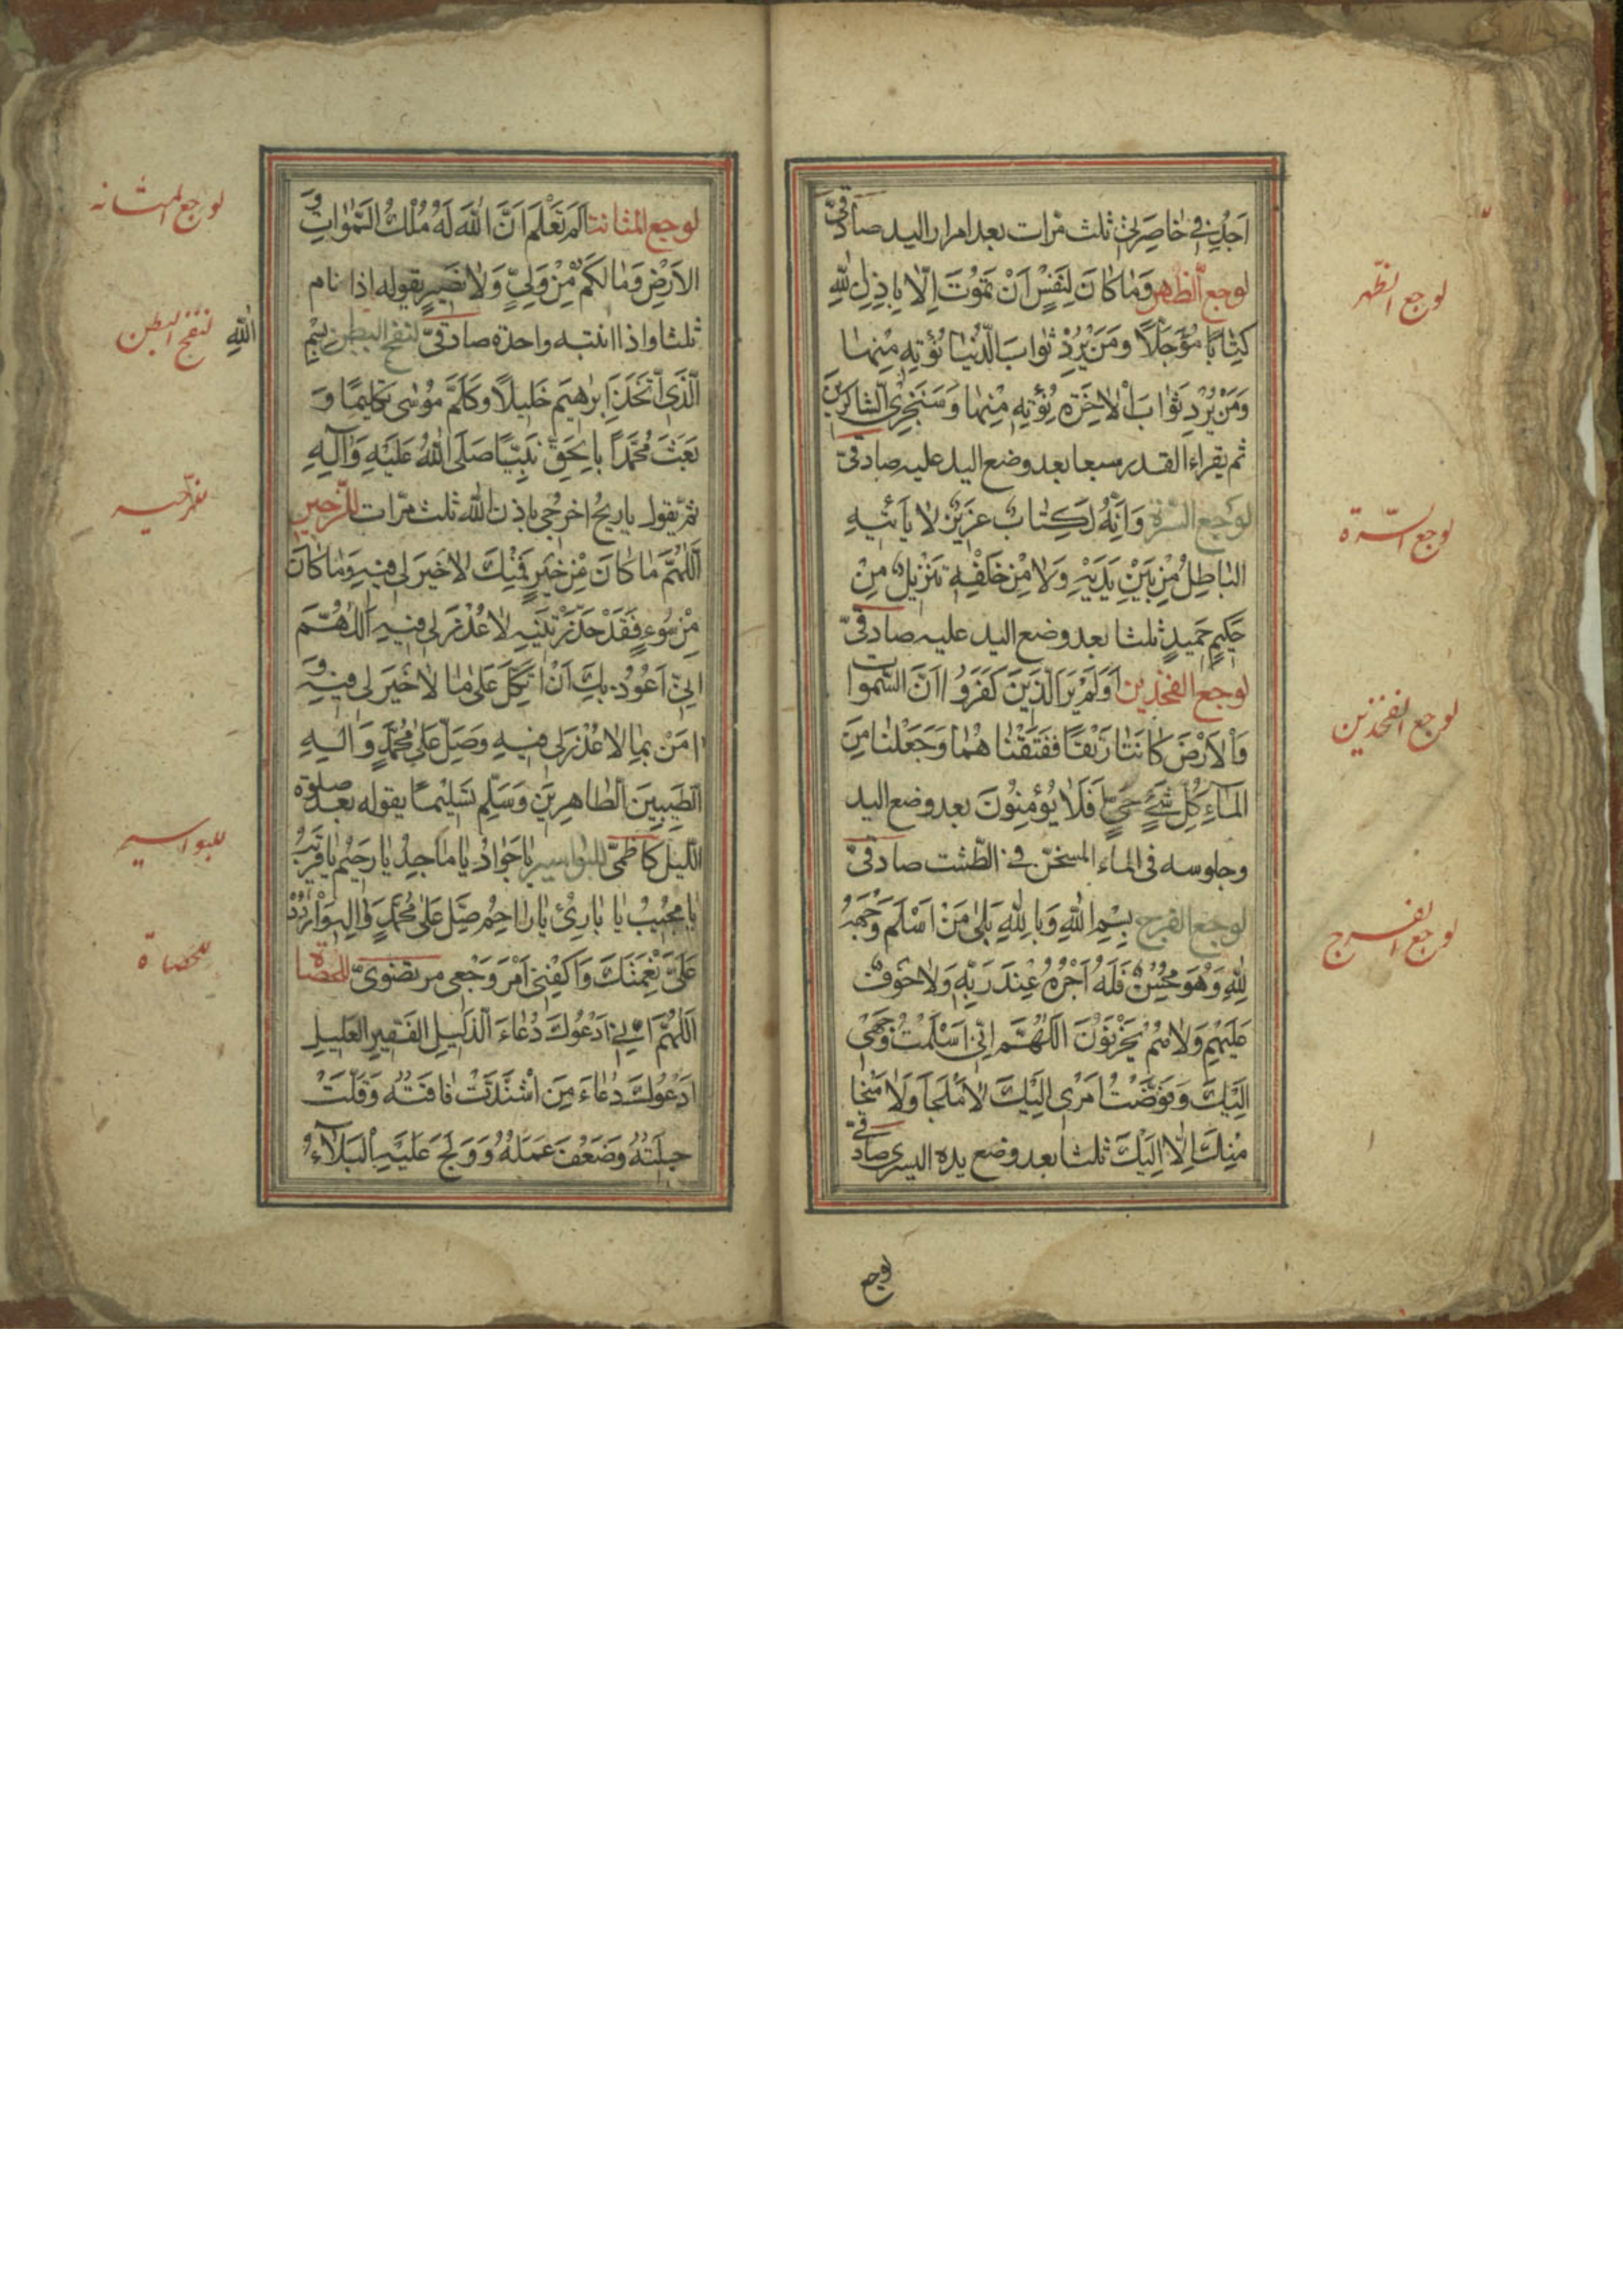 اَجِدُ فِي خٰاصِرَتِي ثلث مرّات بعد امرار اليد صادقىّ
لوجع الظهر وَمٰا كٰانَ لِنَفْسٍ اَنْ تَمُوتَ اِلّٰا بِاِذْنِ اللّٰهِ
كِتٰابًا مُؤَجَّلًا وَمَنْ يُرِدْ ثَوٰابَ الدُّنْيٰا نُؤْتِهِ مِنْهٰا
وَمَنْ يُرِدْ ثَوٰابَ الْاٰخِرَةِ نُؤْتِهِ مِنْهٰا وَسَنَجْزِي الشّٰاكِرِينَ
ثم يقراء القدر سبعا بعد وضع اليد عليه صادقىّ
لوجع السّرّة وَاِنَّهُ لَكِتٰابٌ عَزِيزٌ لٰا يَأْتِيهِ
الْبٰاطِلُ مِنْ بَيْنِ يَدَيْهِ وَلٰا مِنْ خَلْفِهِ تَنْزِيلٌ مِنْ
حَكِيمٍ حَمِيدٍ ثلثا بعد وضع اليد عليه صادقىّ
لوجع الفخذين اَوَلَمْ يَرَ الَّذِينَ كَفَرُوا اَنَّ السَّمٰوٰاتِ
وَالْاَرْضَ كٰانَتٰا رَتْقًا فَفَتَقْنٰاهُمٰا وَجَعَلْنٰا مِنَ
الْمٰاءِ كُلَّ شَيْءٍ حَيٍّ فَلٰا يُؤْمِنُونَ بعد وضع اليد
وجلوسه فى الماء المسخن فى الطّشت صادقىّ
لوجع الفرج بِسْمِ اللّٰهِ وَبِاللّٰهِ بَلٰى مَنْ اَسْلَمَ وَجْهَهُ
لِلّٰهِ وَهُوَ مُحْسِنٌ فَلَهُ اَجْرُهُ عِنْدَ رَبِّهِ وَلٰا خَوْفٌ
عَلَيْهِمْ وَلٰا هُمْ يَحْزَنُونَ اَللّٰهُمَّ اِنِّي اَسْلَمْتُ وَجْهِي
اِلَيْكَ وَفَوَّضْتُ اَمْرِي اِلَيْكَ لٰا مَلْجَأَ وَلٰا مَنْجٰا
مِنْكَ اِلّٰا اِلَيْكَ ثلثا بعد وضع يده اليسرى صادقىّ
لوجع الظّهر
لوجع السّرّة
لوجع الفخذين
لوجع الفرج
لوجع
لوجع المثانة اَلَمْ تَعْلَمْ اَنَّ اللّٰهَ لَهُ مُلْكُ السَّمٰوٰاتِ وَ
الْاَرْضِ وَمٰا لَكُمْ مِنْ وَلِيٍّ وَلٰا نَصِيرٍ يقوله اذا نام
ثلثا واذا انتبه واحدة صادقىّ لنفخ البطن بِسْمِ اللّٰهِ
الَّذِي اتَّخَذَ اِبْرٰهِيمَ خَلِيلًا وَكَلَّمَ مُوسٰى تَكْلِيمًا وَ
بَعَثَ مُحَمَّدًا بِالْحَقِّ نَبِيًّا صَلَّى اللّٰهُ عَلَيْهِ وَاٰلِهِ
ثمّ يقول يا ريحُ اخرُجِي باذن اللّٰه ثلث مرّات للزحير
اَللّٰهُمَّ مٰا كٰانَ مِنْ خَيْرٍ فَمِنْكَ لٰا خَيْرَ لِي فِيهِ وَمٰا كٰانَ
مِنْ سُوءٍ فَقَدْ حَذَّرْتَنِيهِ لٰا عُذْرَ لِي فِيهِ اَللّٰهُمَّ
اِنِّي اَعُوذُ بِكَ اَنْ اَتَّكِلَ عَلٰى مٰا لٰا خَيْرَ لِي فِيهِ وَ
اٰمَنَ بِمٰا لٰا عُذْرَ لِي فِيهِ وَصَلِّ عَلٰى مُحَمَّدٍ وَاٰلِهِ
الطَّيِّبِينَ الطّٰاهِرِينَ وَسَلِّمْ تَسْلِيمًا يقوله بعد صلوة
الليل كاظمىّ للبواسير يٰا جَوٰادُ يٰا مٰاجِدُ يٰا رَحِيمُ يٰا قَرِيبُ
يٰا مُجِيبُ يٰا بٰارِئُ يٰا رٰاحِمُ صَلِّ عَلٰى مُحَمَّدٍ وَاٰلِهِ وَارْدُدْ
عَلَيَّ نِعْمَتَكَ وَاكْفِنِي اَمْرَ وَجَعِي مرتضوىّ للحصاة
اَللّٰهُمَّ اِنِّي اَدْعُوكَ دُعٰاءَ الذَّلِيلِ الْفَقِيرِ الْعَلِيلِ
اَدْعُوكَ دُعٰاءَ مَنِ اشْتَدَّتْ فٰاقَتُهُ وَقَلَّتْ
حِيلَتُهُ وَضَعُفَ عَمَلُهُ وَ عَلَيْهِ الْبَلٰاءُ
لوجع المثانه
لنفخ البطن
للبواسير
للحصاة